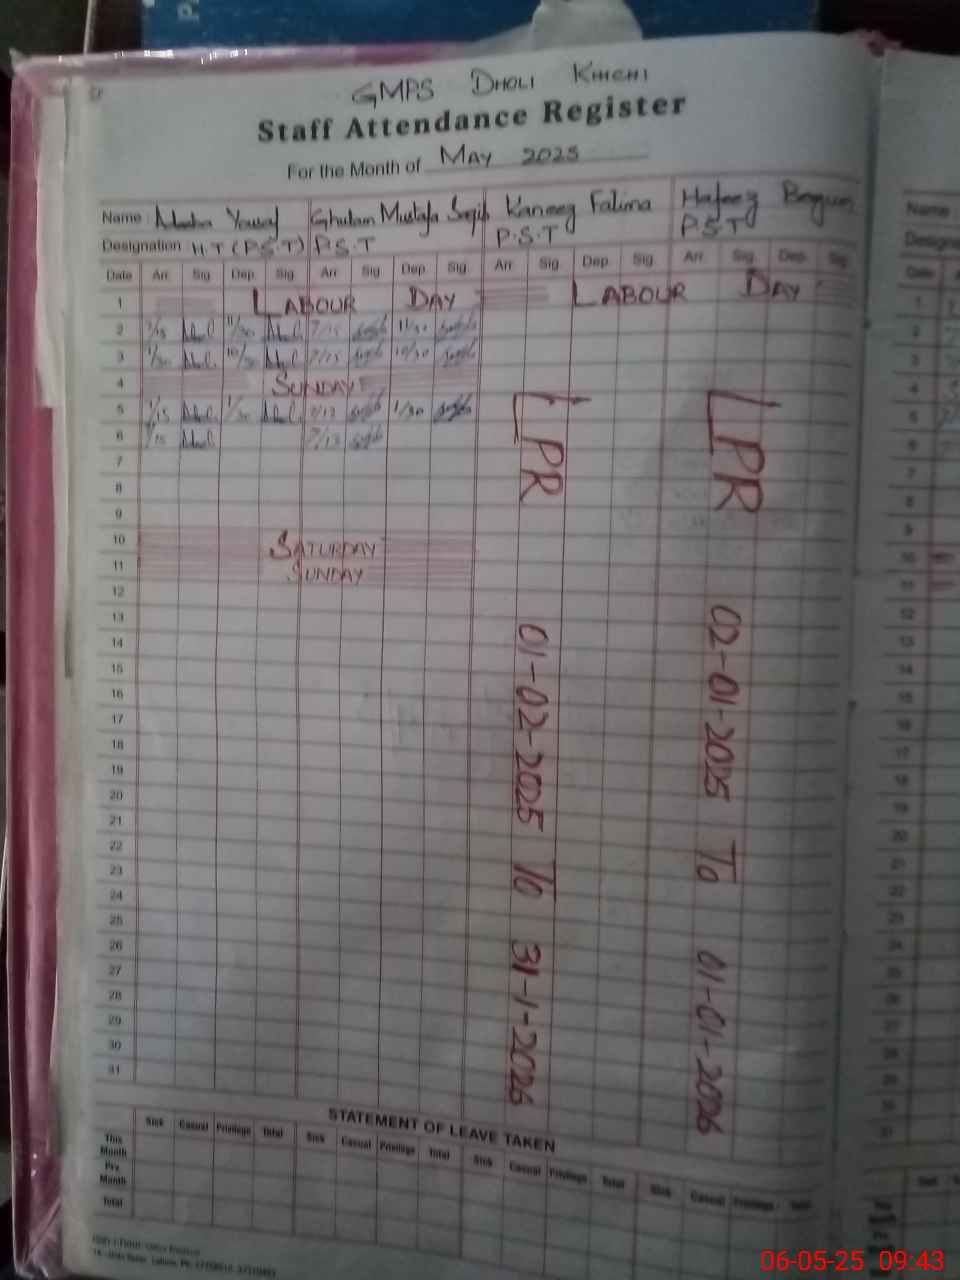 GMPS DHOLI KHICHI
Staff Attendance Register
For the Month of MAY 2025
Name: Yousaf Ghulam Mustafa Saqib Kaneez Fatima Hafeez Begum
Designation H.T (P.S.T) P.S.T P.S.T P.S.T
Date Arr Sig Dep. Sig Arr Sig Dep. Sig Arr Sig Dep. Sig Arr Sig. Dep. Sig
1 LABOUR DAY LABOUR DAY
2 7/15 11/30 7/15 11/30
3 7/30 10/30 7/15 10/30
4 SUNDAY
5 7/15 1/30 7/13 1/30
6 7/15 7/13
7
8
9
10 SATURDAY
11 SUNDAY
12
13
14
15
16
17
18
19
20
21
22
23
24
25
26
27
28
29
30
31
LPR 01-02-2025 To 31-1-2026
LPR 02-01-2025 To 01-01-2026
STATEMENT OF LEAVE TAKEN
Sick Casual Privilege Total Sick Casual Privilege Total Sick Casual Privilege Total Sick Casual Privilege Total
This Month
Prv. Month
Total
Name
Date
1
2
3
4
5
6
7
8
9
10
11
12
13
14
15
16
17
18
19
20
21
22
23
24
06-05-25 09:43